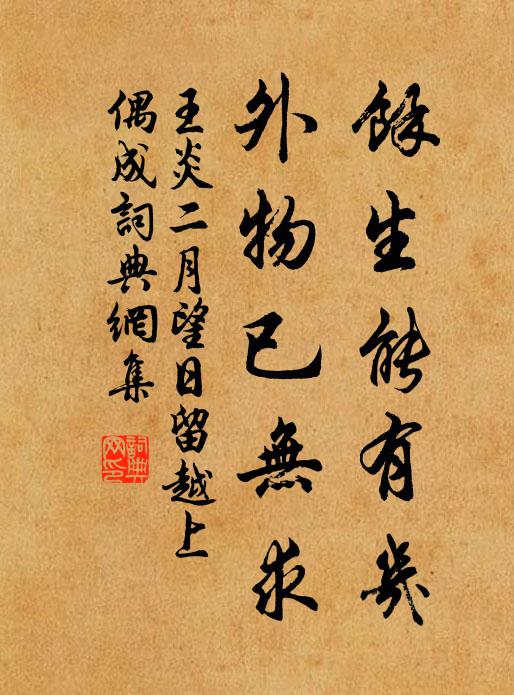 餘生能有幾
外物已無求
王炎二月望日留越上
偶成詞典網集
詞典
网印